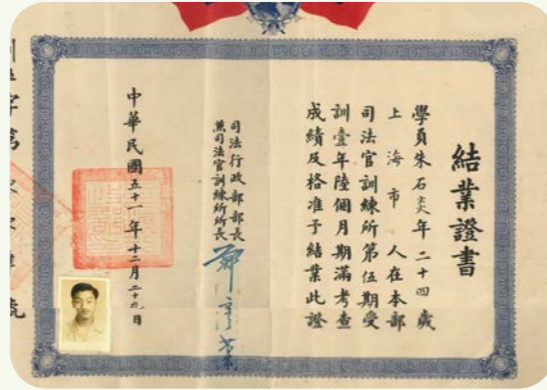 結業證書
學員朱石炎年二十四歲
上海市人在本部
司法官訓練所第伍期受
訓壹年陸個月期滿考查
成績及格准予結業此證
司法行政部部長
兼司法官訓練所所長
鄭彥棻
中華民國五十一年十二月二十九日